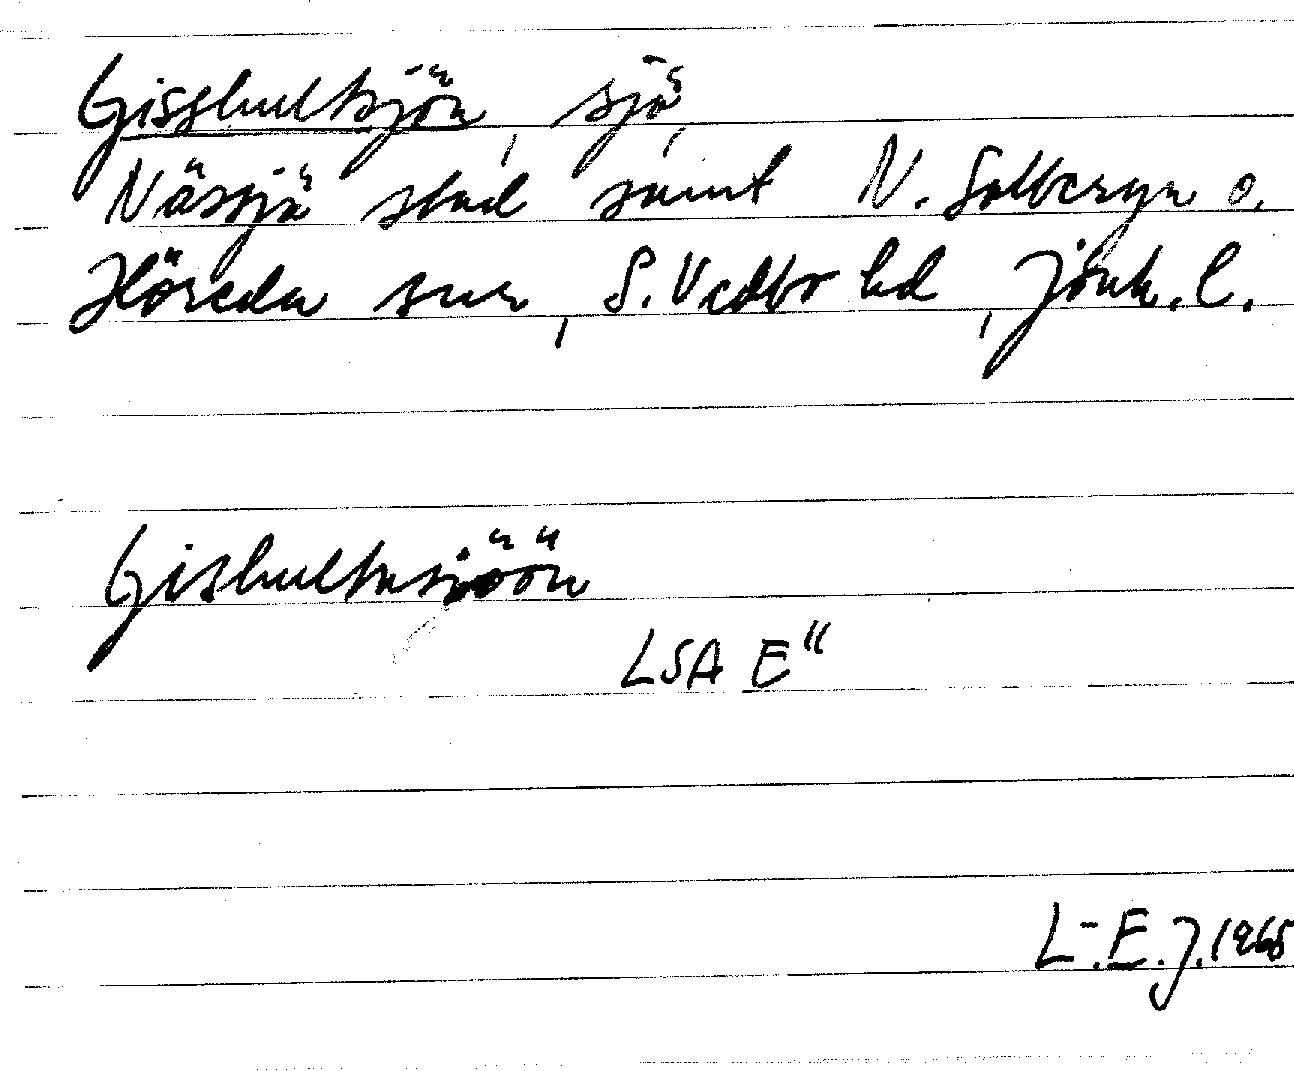 Gisshultsjön, sjö,
Nässjö stad samt N. Solberga o.
Höreda snr, S. Vedbo hd, Jönk. l.
Gishultasjöön
LSA E"
L.-E. J. 1965